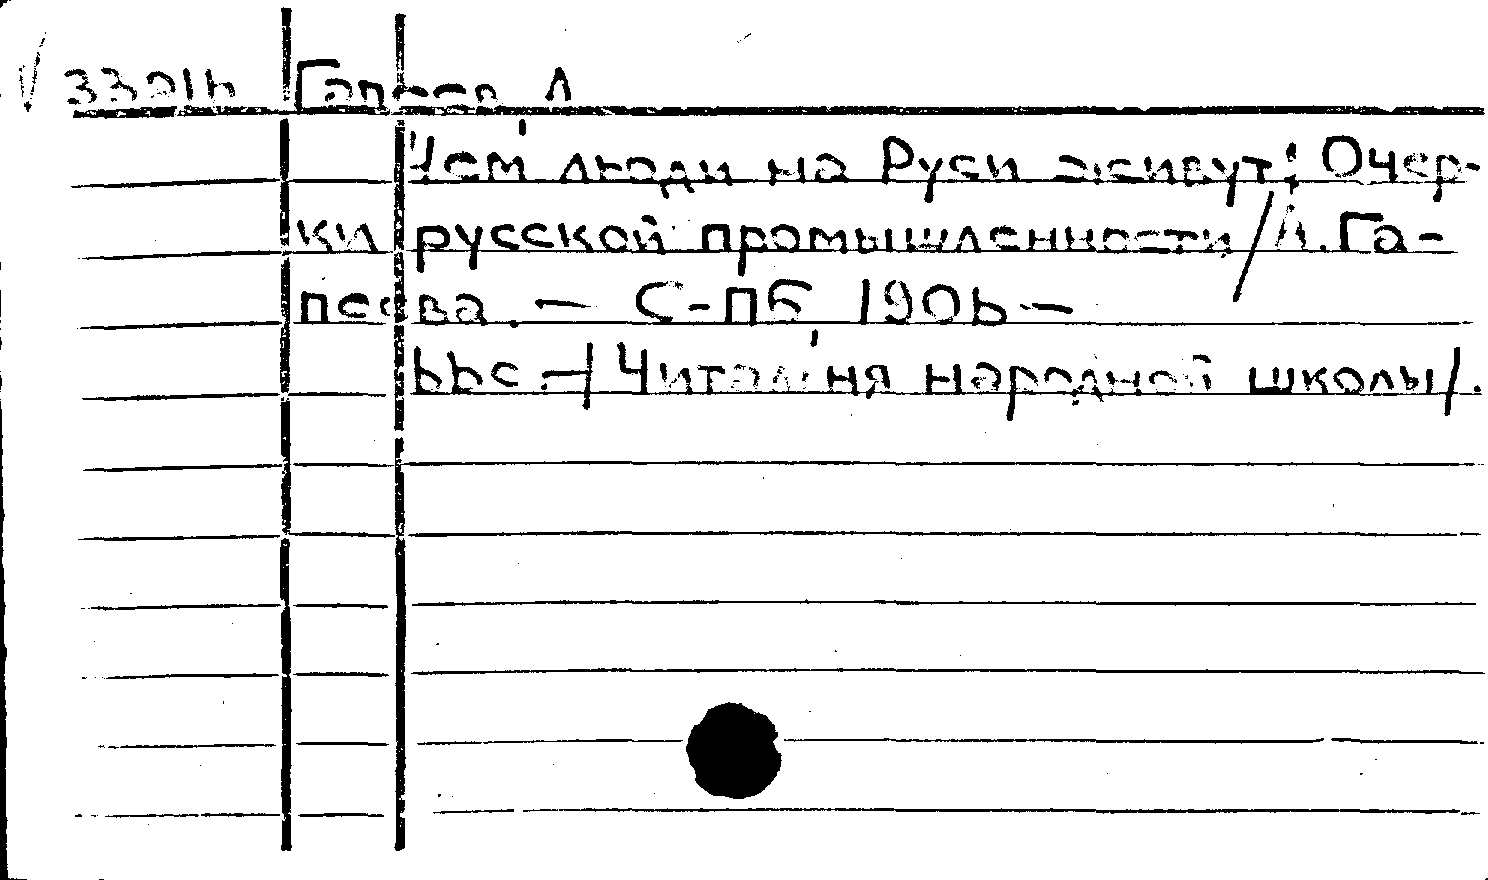 Гапеев, А.
Чем люди на Руси живут: Очер-
ки русской промышленности / А. Га-
пеева. — С-Пб, 1906 —
66с. — /Читальня народной школы/.